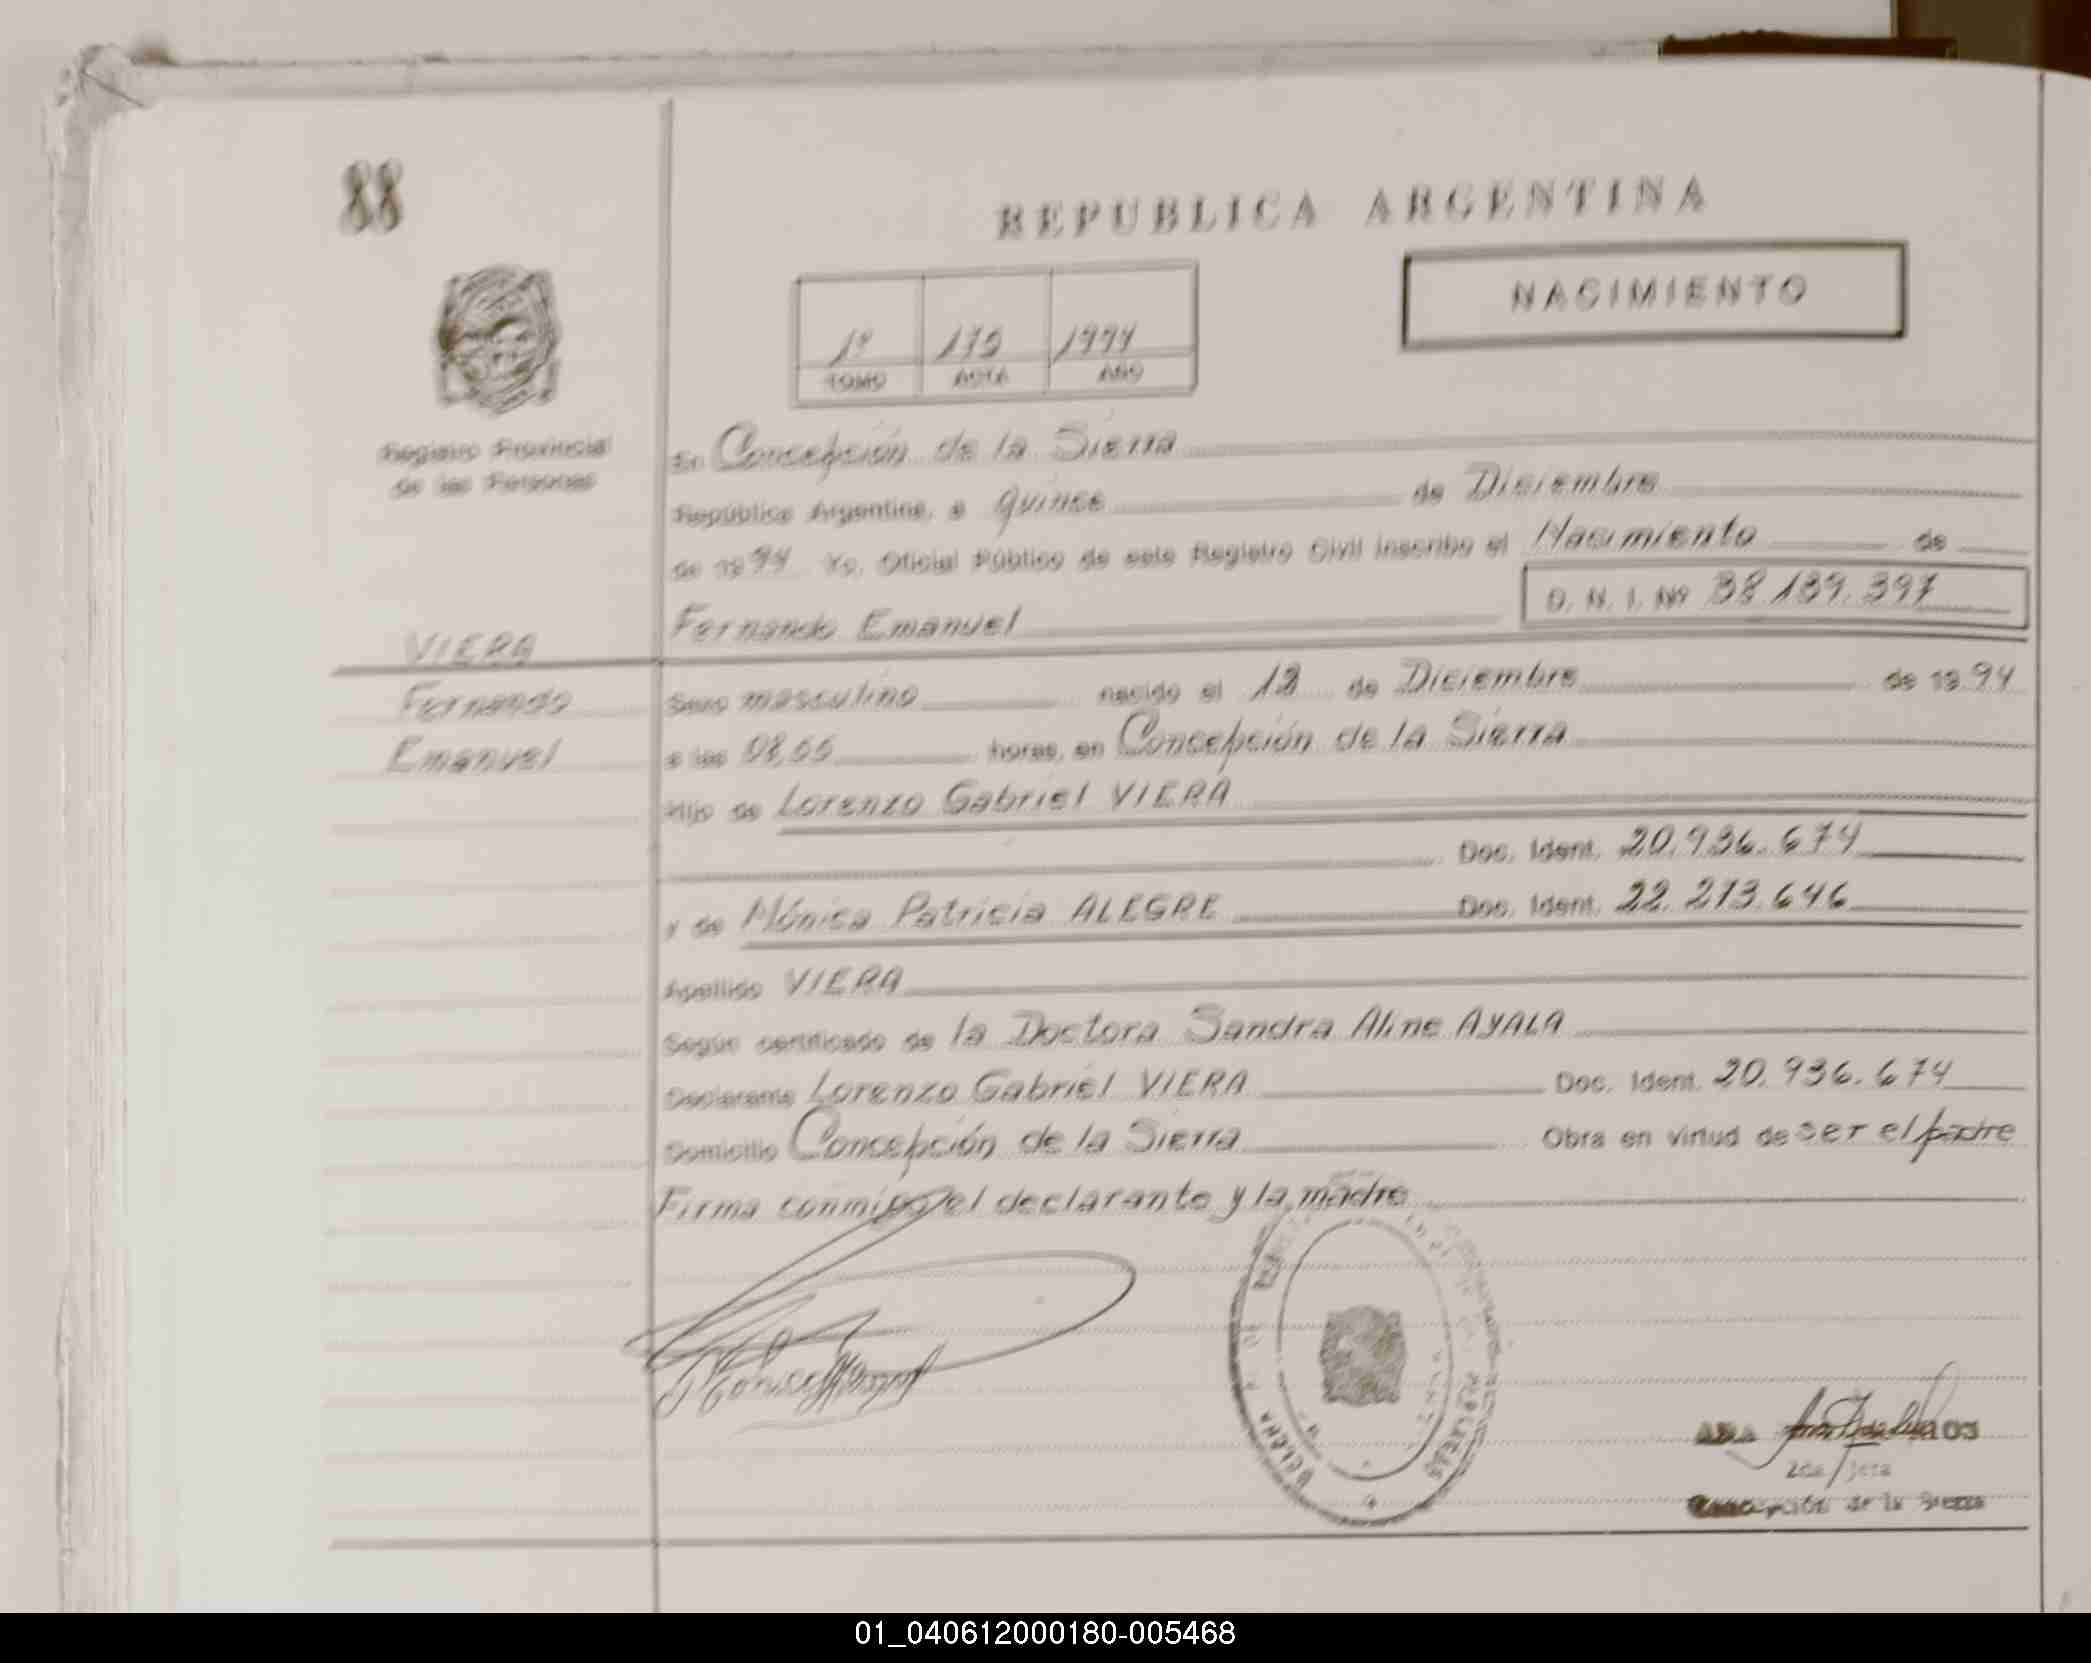 88
REPUBLICA ARGENTINA
NACIMIENTO
1º 175 1994
TOMO ACTA AÑO
Registro Provincial
de las Personas
En Concepción de la Sierra
República Argentina, a quince de Diciembre
de 1994 Yo, Oficial Público de este Registro Civil inscribo el Nacimiento de
D. N. I. Nº 38.189.397
Fernando Emanuel
VIERA
Fernando
Emanuel
Sexo masculino nacido el 12 de Diciembre de 1994
a las 08,55 horas, en Concepción de la Sierra
Hijo de Lorenzo Gabriel VIERA
Doc. Ident. 20.936.674
y de Mónica Patricia ALEGRE Doc. Ident. 22.213.646
Apellido VIERA
Según certificado de la Doctora Sandra Aline AYALA
Declarante Lorenzo Gabriel VIERA Doc. Ident. 20.936.674
Domicilio Concepción de la Sierra Obra en virtud de ser el padre
Firma conmigo el declarante y la madre
Concepción de la Sierra
01_040612000180-005468